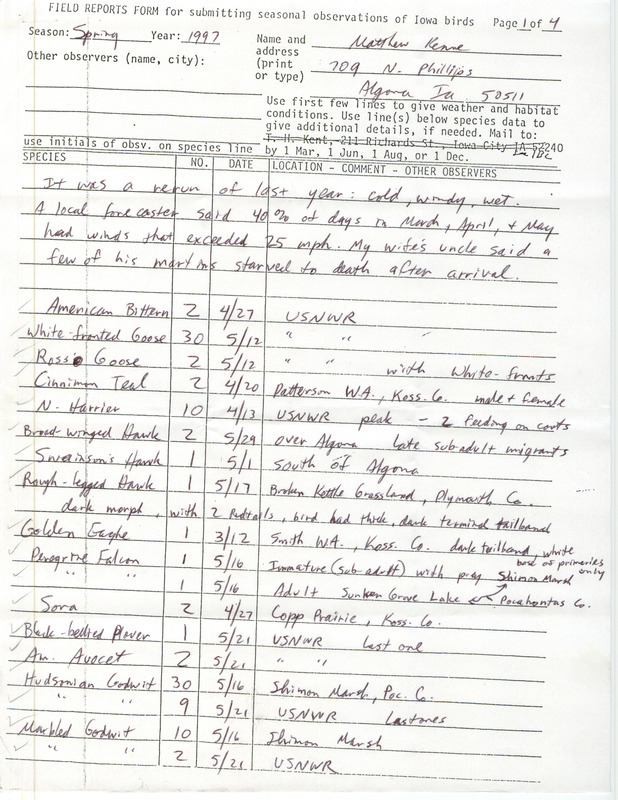 FIELD REPORTS FORM for submitting seasonal observations of Iowa birds Page 1 of 4
Season: Spring Year: 1997 Name and address (print or type) Matthew Kenne
Other observers (name, city): 709 N. Phillips
Algona Ia. 50511
Use first few lines to give weather and habitat
conditions. Use line(s) below species data to
give additional details, if needed. Mail to:
T. H. Kent, 211 Richards St., Iowa City IA 52240
use initials of obsv. on species line by 1 Mar, 1 Jun, 1 Aug, or 1 Dec.
SPECIES NO. DATE LOCATION - COMMENT - OTHER OBSERVERS
It was a rerun of last year: cold, windy, wet.
A local forecaster said 40% of days in March, April, + May
had winds that exceeded 25 mph. My wife's uncle said a
few of his martins starved to death after arrival.
American Bittern 2 4/27 USNWR
White-fronted Goose 30 5/12 " " "
Ross' Goose 2 5/12 " " with White-fronts
Cinnimon Teal 2 4/20 Patterson W.A., Koss. Co. male + female
N. Harrier 10 4/13 USNWR peak - 2 feeding on coots
Broad-winged Hawk 2 5/29 over Algona late sub-adult migrants
Swainson's Hawk 1 5/1 South of Algona
Rough-legged Hawk 1 5/17 Broken Kettle Grassland, Plymouth Co.
dark morph, with 2 Redtails, bird had thick, dark terminal tailband
Golden Eagle 1 3/12 Smith W.A., Koss. Co. dark tailband, white
base of primaries only
Peregrine Falcon 1 5/16 Immature (sub-adult) with prey Shimon Marsh
" " 1 5/16 Adult Sunken Grove Lake Pocahontas Co.
Sora 2 4/27 Copp Prairie, Koss. Co.
Black-bellied Plover 1 5/21 USNWR last one
Am. Avocet 2 5/21 " "
Hudsonian Godwit 30 5/16 Shimon Marsh, Poc. Co.
" " 9 5/21 USNWR Last ones
Marbled Godwit 10 5/16 Shimon Marsh
" " 2 5/21 USNWR